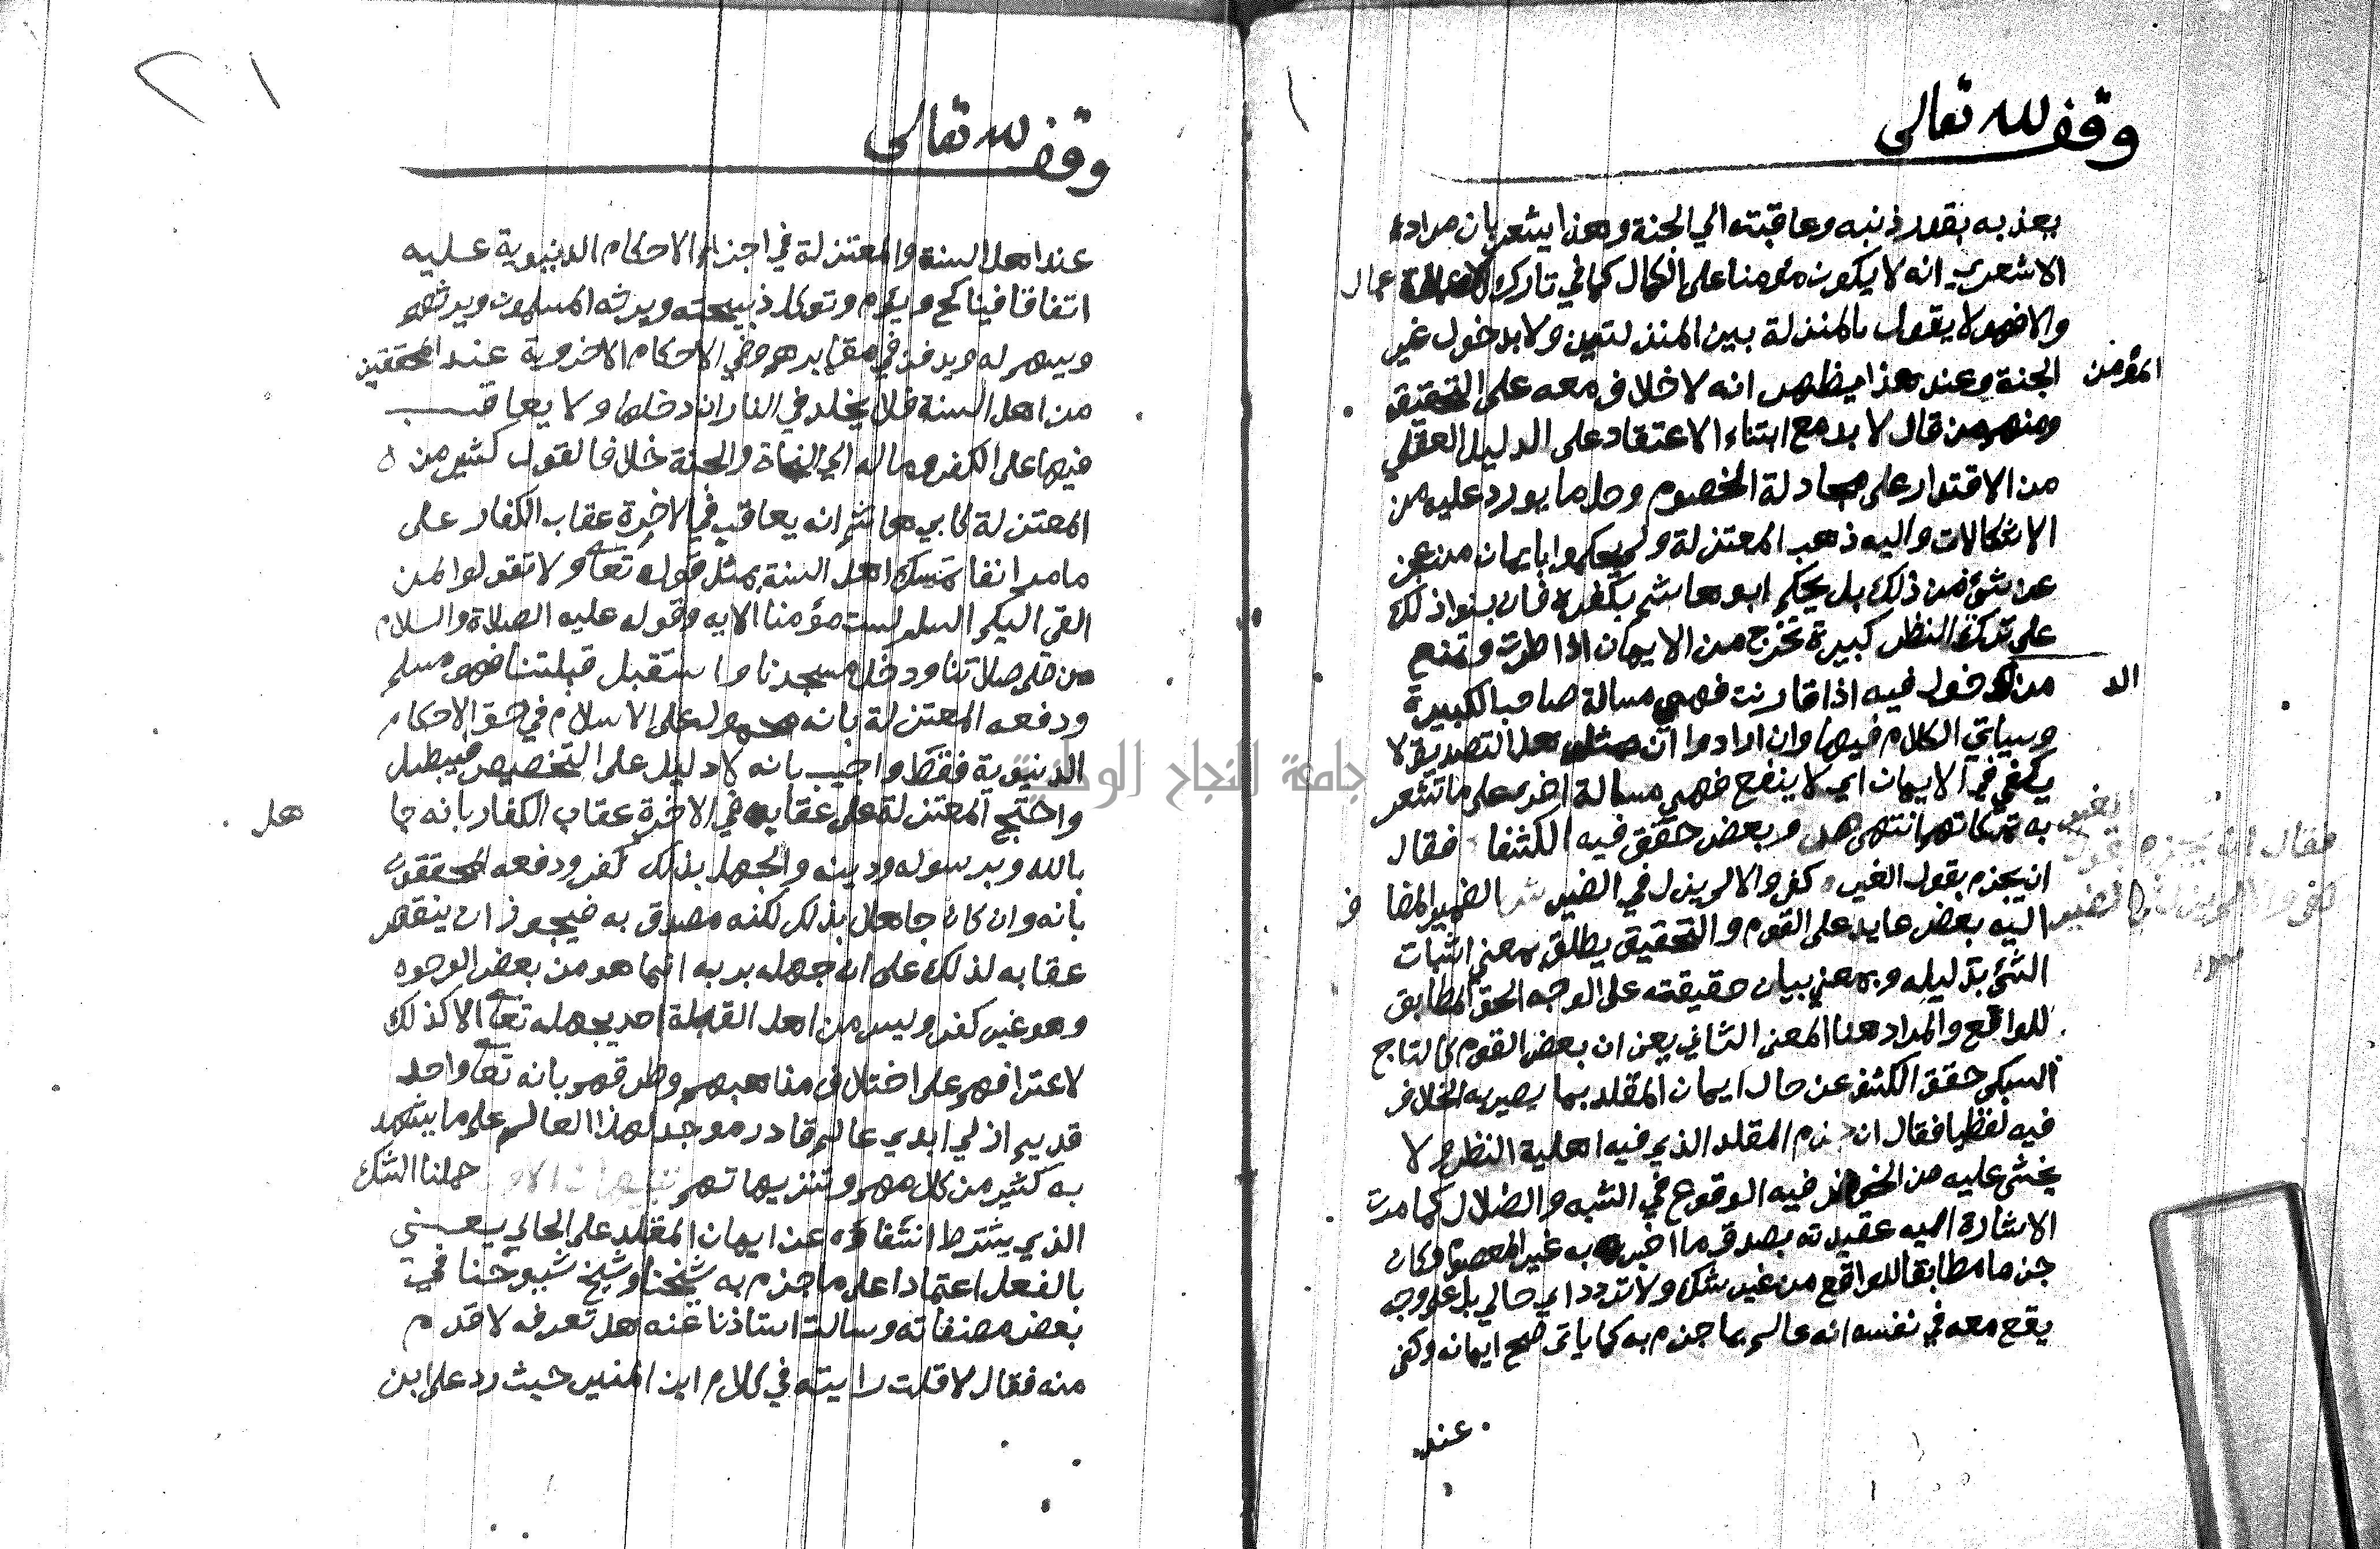 وقف لله تعالى
يعذبه بقدر ذنبه وعاقبته الي الجنة وهذا يشعر بان مراده
الاشعري انه لا يكون مؤمنا على الكمال كما في تارك الاعمال
والا فهو لا يقول بالمنزلة بين المنزلتين ولا بدخول غير
المؤمن الجنة وعند هذا يظهر انه لا خلاف معه على التحقيق
ومنهم من قال لا بد مع ابتناء الاعتقاد على الدليل العقلي
من الاقتدار على مجادلة الخصوم وحل ما يورد عليه من
الاشكالات واليه ذهب المعتزلة ولم يحكموا بايمان من عجز
عن شئ من ذلك بل يحكم ابو هاشم بكفره فان بنوا ذلك
على ترك النظر كبيرة تخرج من الايمان اذا طرت وتمنع
من الدخول فيه اذا قارنت فهي مسالة صاحب الكبيرة
وسياتي الكلام فيها وان ارادوا ان مثل هذا التصديق لا
يكفي في الايمان اي لا ينفع فهي مسالة اخرى على ما تشعر
به تمسكاتهم انتهى وبعض حقق فيه الكشفا فقال
ان يجزم بقول الغير كفى والا لم يزل في الضير الضمير المضاف
اليه بعض عايد على القوم والتحقيق يطلق بمعني اثبات
الشئ بدليله وبمعني بيان حقيقته على الوجه الحق المطابق
للواقع والمراد هنا المعنى الثاني يعني ان بعض القوم كالتاج
السبكي حقق الكشف عن حال ايمان المقلد بما يصير به الخلاف
فيه لفظيا فقال ان جزم المقلد الذي فيه اهلية النظر ولا
يخشى عليه من الخوض فيه الوقوع في الشبه والضلال كما مرت
الاشارة اليه عقيدته بصدق ما اخبره به غير المعصوم وكان
جزما مطابقا للواقع من غير شك ولا تردد اي حالي بل على وجه
يقع معه في نفسه انه عالم بما جزم به كما ياتي صح ايمانه وكفى
عند
٢١
وقف لله تعالى
عند اهل السنة والمعتزلة في اجراء الاحكام الدنيوية عليه
اتفاقا فيناكح ويؤم وتوكل ذبيحته ويرثه المسلمون ويرثهم
ويسهم له ويدفن في مقابرهم وفي الاحكام الاخروية عند المحققين
من اهل السنة فلا يخلد في النار ان دخلها ولا يعاقب
فيها على الكفر وماله الي النجاة والجنة خلافا لقول كثير من
المعتزلة كابي هاشم انه يعاقب في الاخرة عقاب الكفار على
ما مر انفا تمسك اهل السنة بمثل قوله تعا ولا تقولوا لمن
القى اليكم السلم لست مؤمنا الايه وقوله عليه الصلاة والسلام
من صلى صلاتنا ودخل مسجدنا واستقبل قبلتنا فهو مسلم
ودفعه المعتزلة بانه محمول على الاسلام في حق الاحكام
الدنيوية فقط واجيب بانه لا دليل على التخصيص فيبطل
واحتج المعتزلة على عقابه في الاخرة عقاب الكفار بانه جاهل
بالله وبرسوله ودينه والجهل بذلك كفر ودفعه المحققون
بانه وان كان جاهلا بذلك لكنه مصدق به فيجوز ان ينقص
عقابه لذلك على ان جهله بربه انما هو من بعض الوجوه
وهو غير كفر وليس من اهل القبلة احد يجهله تعا الا كذلك
لاعترافهم على اختلاف مذاهبهم وطرقهم بانه تعا واحد
قديم ازلي ابدي عالم قادر موجد لهذا العالم على ما يشهد
به كثير من كلامهم وتنزيهاتهم حملنا الشك
الذي يشترط انتفاؤه عن ايمان المقلد على الحالي يعني
بالفعل اعتمادا على ما جزم به شيخنا وشيخ شيوخنا في
بعض مصنفاته وسالت استاذنا عنه هل تعرفه لاقدم
منه فقال لا قلت رايته في كلام ابن المنير حيث رد على ابن